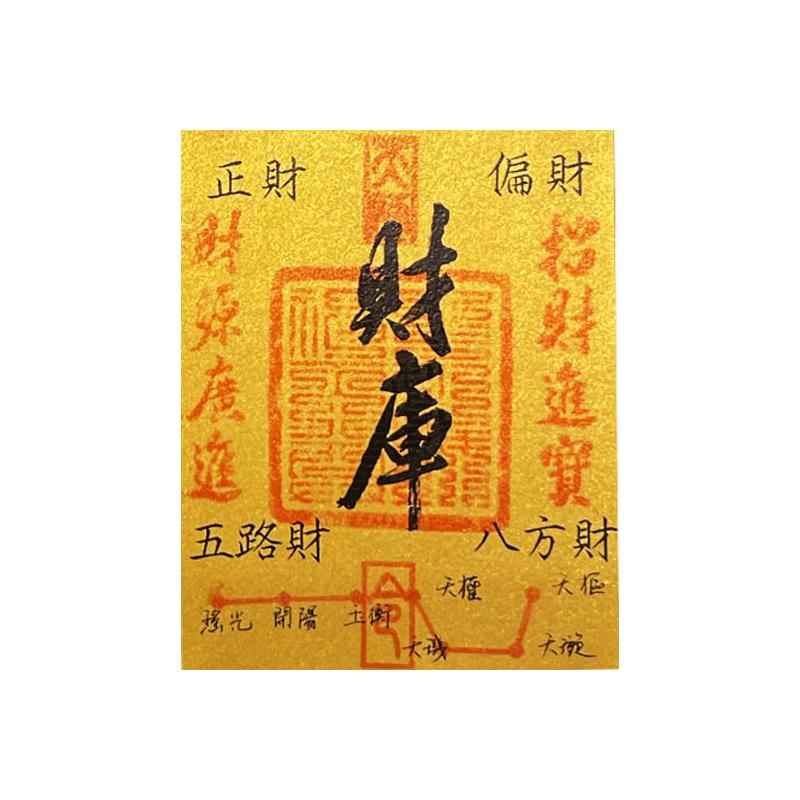 正財
偏財
財庫
財源廣進
招財進寶
五路財
八方財
天權
天樞
瑤光
開陽
玉衡
天璇
命